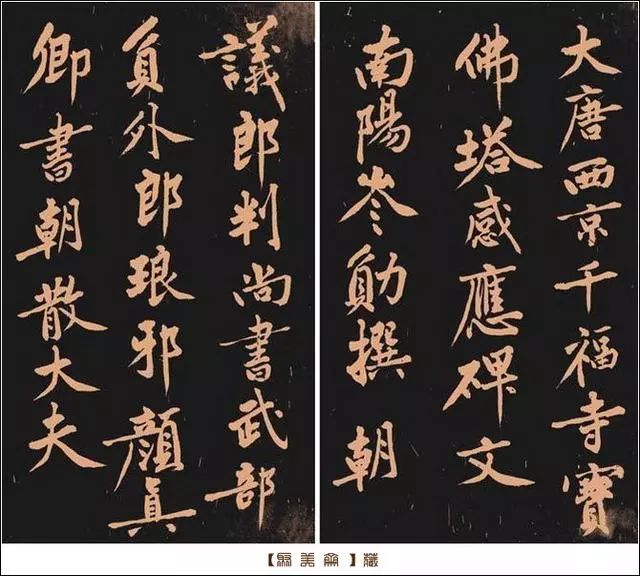 大唐西京千福寺寶
佛塔感應碑文
南陽岑勛撰 朝
議郎判尚書武部
員外郎琅邪顏真
卿書朝散大夫
【聚美】藏